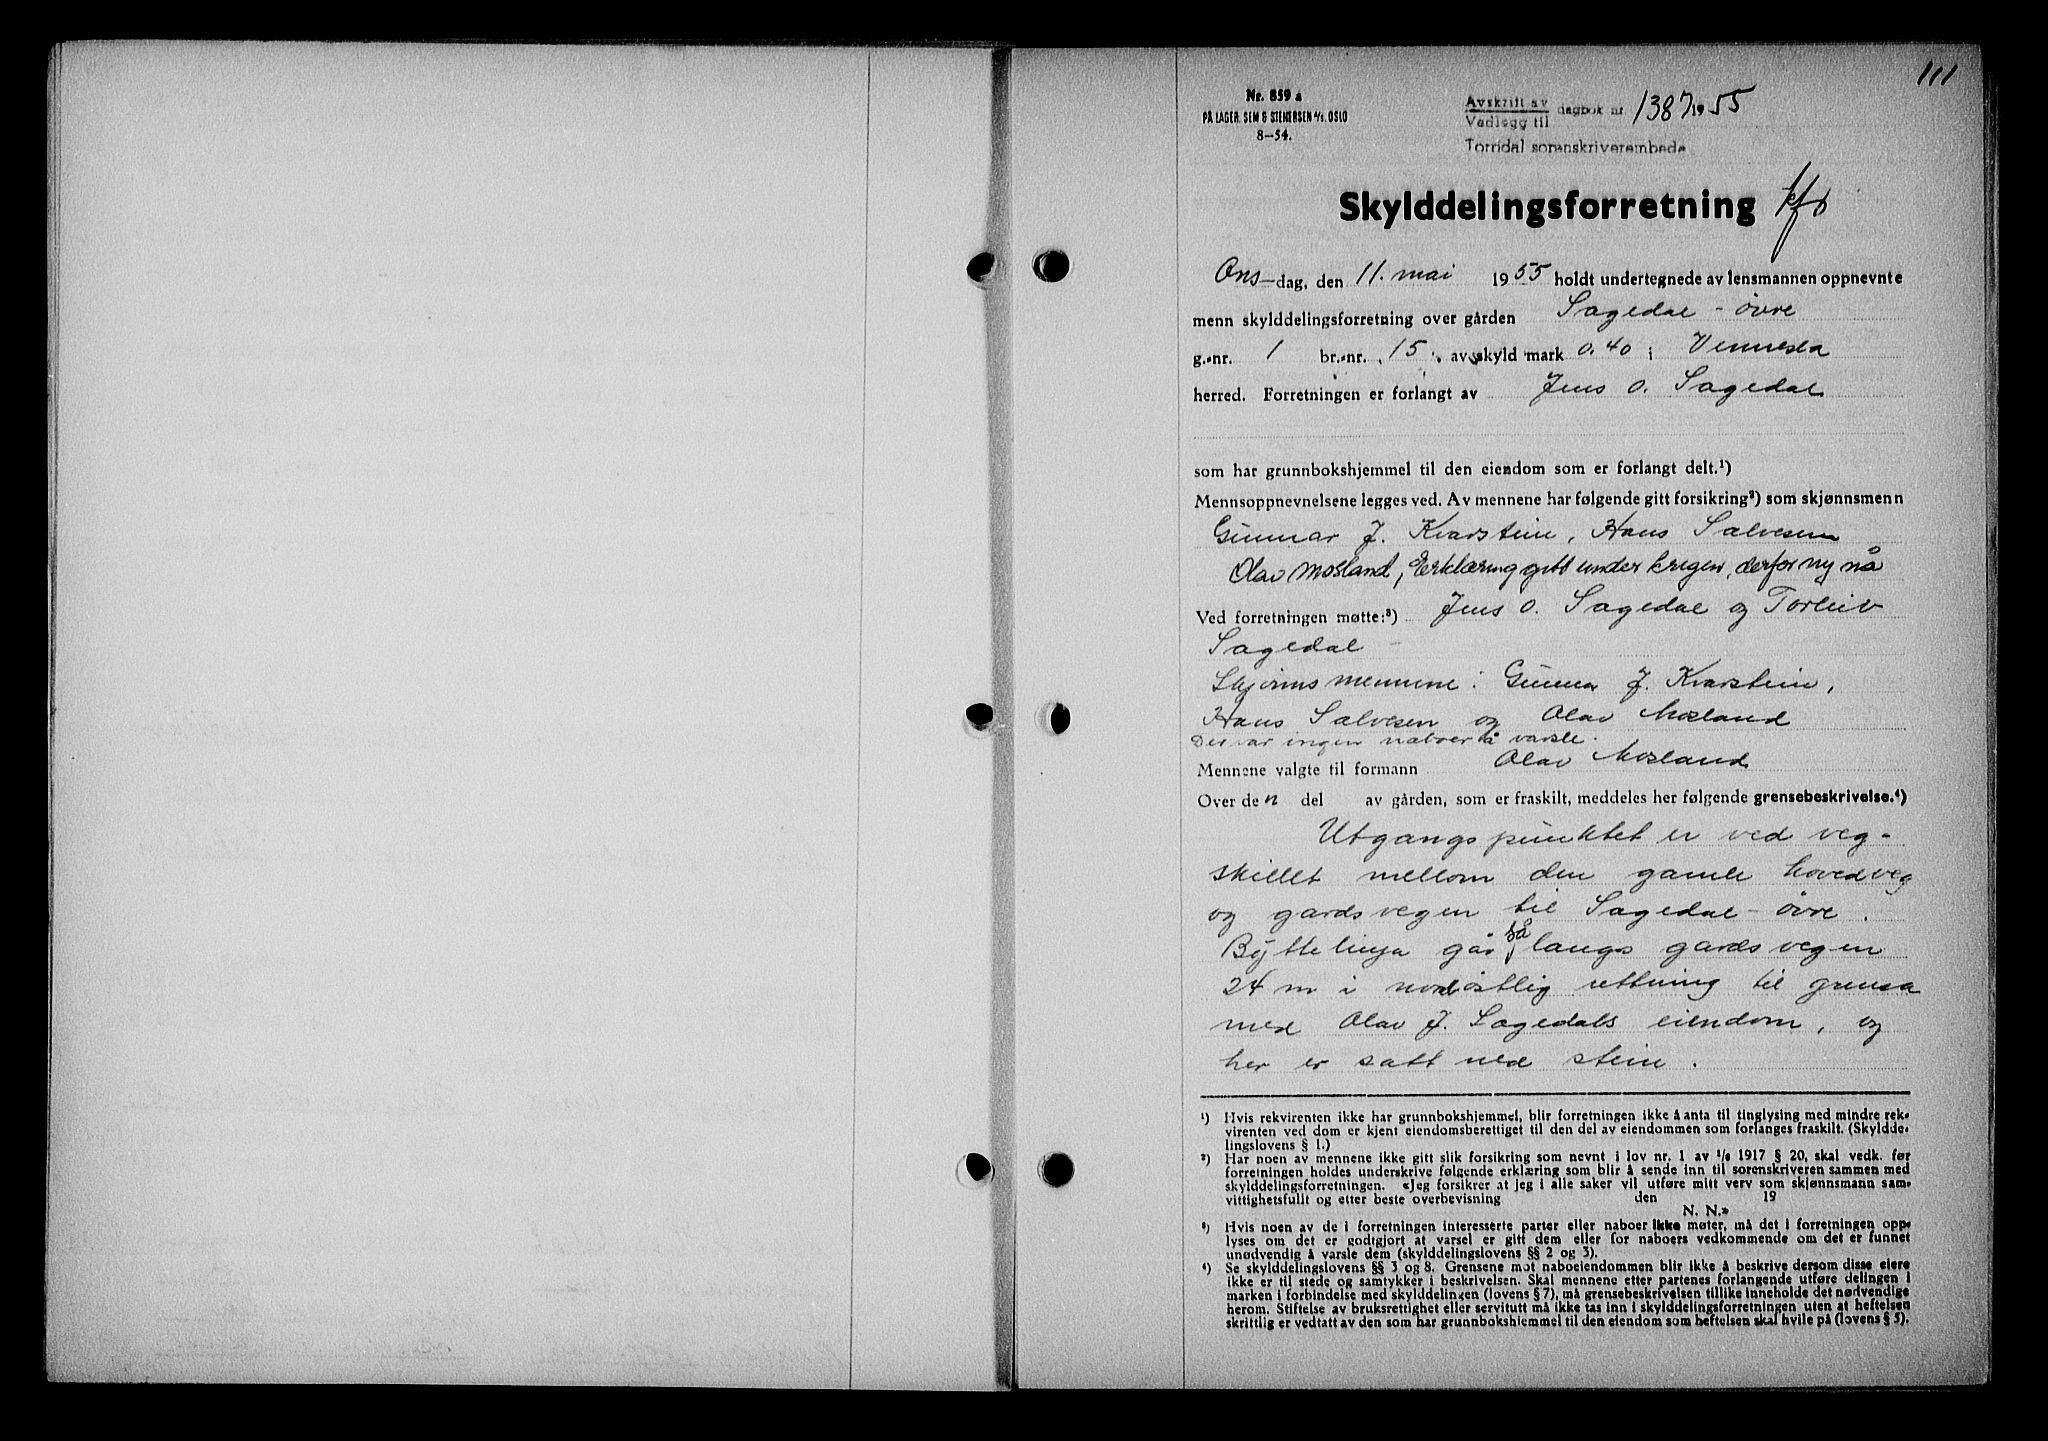 111
Nr. 859 a
PÅ LAGER. SEM & STENERSEN A/S. OSLO
8—54.
Avskrift av
Vedlegg til
dagbok nr 1387 19 55
Torridal sorenskriverembede
Skylddelingsforretning
Ons-dag, den 11. mai 1955 holdt undertegnede av lensmannen oppnevnte
menn skylddelingsforretning over gården Sagedal - øvre
g.-nr. 1 br.-nr. 15 av skyld mark 0.40 i Vennesla
herred. Forretningen er forlangt av Jens O. Sagedal
som har grunnbokshjemmel til den eiendom som er forlangt delt.¹)
Mennsoppnevnelsene legges ved. Av mennene har følgende gitt forsikring²) som skjønnsmenn
Gunnar J. Kvarstein, Hans Salvesen
Olav Mosland, Erklæring gitt under krigen, derfor ny nå
Ved forretningen møtte:³) Jens O. Sagedal og Torleiv
Sagedal -
Skjønnsmennene: Gunnar J. Kvarstein,
Hans Salvesen og Olav Mosland
Der var ingen naboer å varsle.
Mennene valgte til formann Olav Mosland
Over den del av gården, som er fraskilt, meddeles her følgende grensebeskrivelse.⁴)
Utgangspunktet er ved veg-
skillet mellom den gamle hovedveg
og gardsvegen til Sagedal - øvre.
Byttelinja går så langs gardsvegen
24 m i nordøstlig rettning til grensa
med Olav J. Sagedals eiendom, og
her er satt ned stein.
¹) Hvis rekvirenten ikke har grunnbokshjemmel, blir forretningen ikke å anta til tinglysing med mindre rek-
virenten ved dom er kjent eiendomsberettiget til den del av eiendommen som forlanges fraskilt. (Skyldde-
lingslovens § 1.)
²) Har noen av mennene ikke gitt slik forsikring som nevnt i lov nr. 1 av 1/6 1917 § 20, skal vedk. før
forretningen holdes underskrive følgende erklæring som blir å sende inn til sorenskriveren sammen med
skylddelingsforretningen. «Jeg forsikrer at jeg i alle saker vil utføre mitt verv som skjønnsmann sam-
vittighetsfullt og etter beste overbevisning den 19
N. N.»
³) Hvis noen av de i forretningen interesserte parter eller naboer ikke møter, må det i forretningen opp-
lyses om det er godtgjort at varsel er gitt dem eller for naboers vedkommende om det er funnet
unødvendig å varsle dem (skylddelingslovens §§ 2 og 3).
⁴) Se skylddelingslovens §§ 3 og 8. Grensene mot naboeiendommen blir ikke å beskrive dersom disse eiere
ikke er til stede og samtykker i beskrivelsen. Skal mennene etter partenes forlangende utføre delingen i
marken i forbindelse med skylddelingen (lovens § 7), må grensebeskrivelsen tillike inneholde det nødvendige
herom. Stiftelse av bruksrettighet eller servitutt må ikke tas inn i skylddelingsforretningen uten at heftelsen
skrittlig er vedtatt av den som har grunnbokshjemmel til den eiendom som heftelsen skal hvile på (lovens § 5).